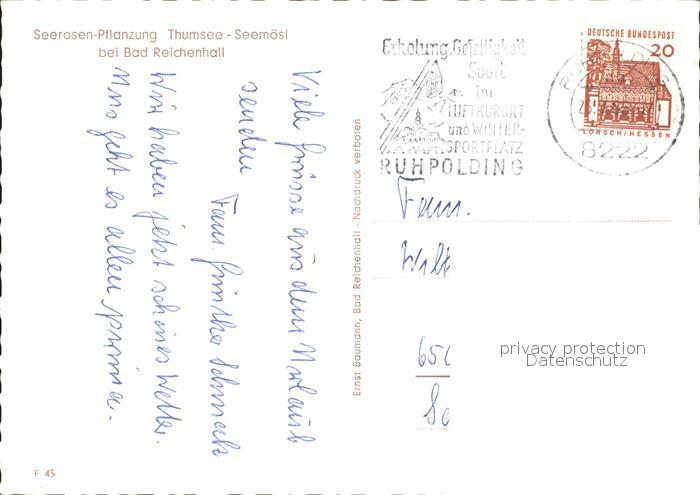 Seerosen-Pflanzung Thumsee - Seemösl
bei Bad Reichenhall
Viele Grüsse aus dem Urlaub
senden
Fam. Günther Schmak
Wir haben jetzt schönes Wetter.
Uns geht es allen prima.
F 45
Ernst Baumann, Bad Reichenhall - Nachdruck verboten
Erholung, Geselligkeit
Sport
im
LUFTKURORT
und WINTER-
SPORTPLATZ
RUHPOLDING
DEUTSCHE BUNDESPOST
20
LORSCH/HESSEN
8222
Fam.
Wilt
650
So
privacy protection
Datenschutz